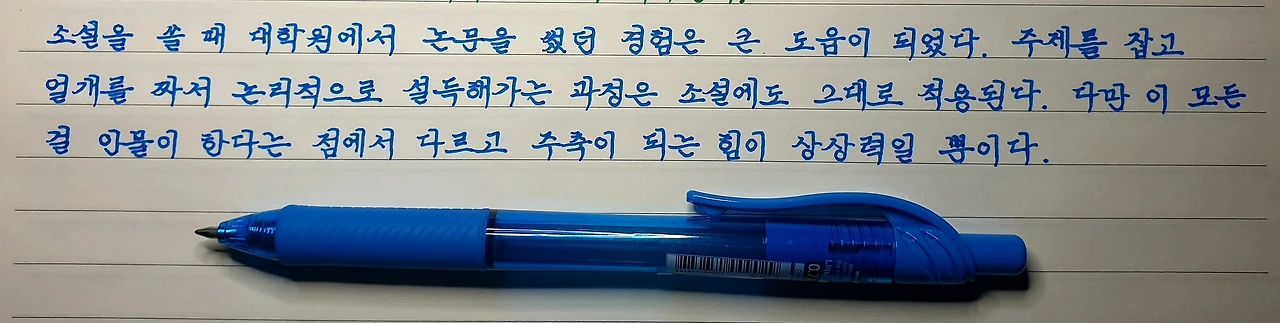 소설을 쓸 때 대학원에서 논문을 썼던 경험은 큰 도움이 되었다. 주제를 잡고
얼개를 짜서 논리적으로 설득해가는 과정은 소설에도 그대로 적용된다. 다만 이 모든
걸 인물이 한다는 점에서 다르고 주축이 되는 힘이 상상력일 뿐이다.
0.7